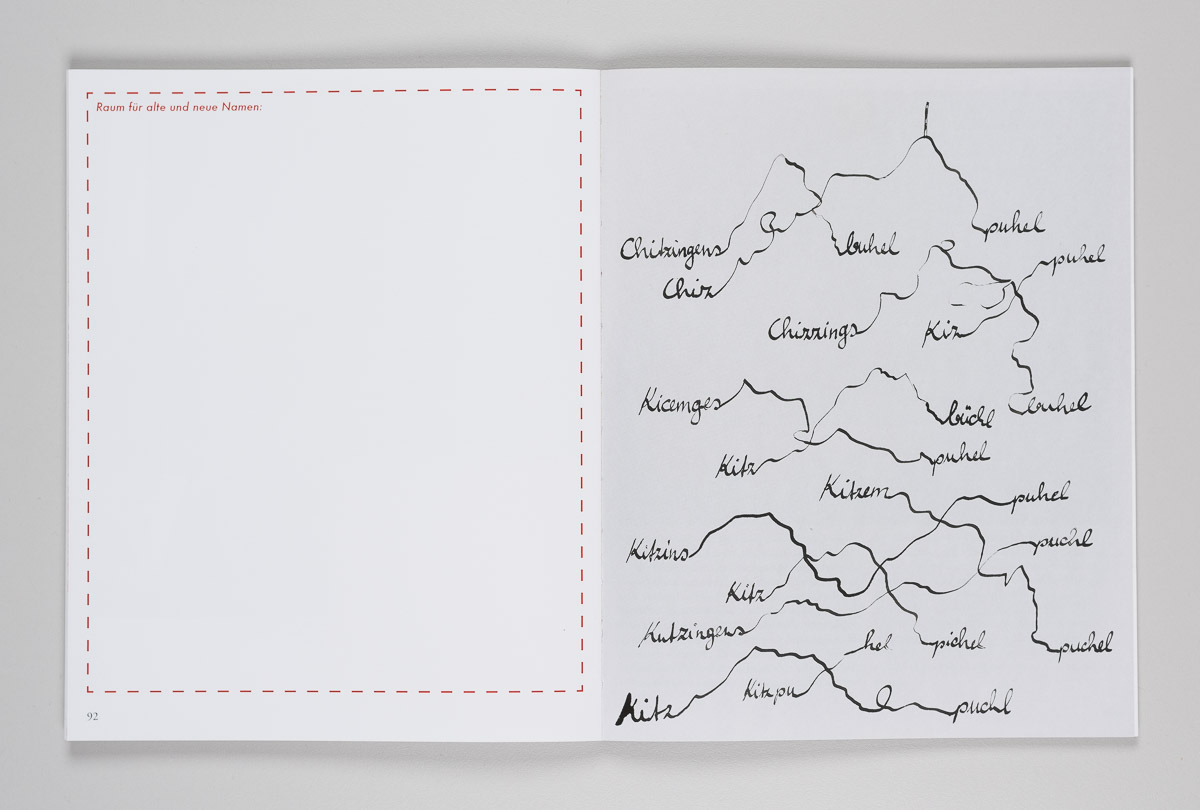 Raum für alte und neue Namen:
92
Chitzingens buhel puhel
Chirz puhel
Chizzings Kiz
Kicemges büchl buhel
Kitz puhel
Kitzem puhel
Kitzins puchl
Kitz
Kutzingens hel pichel puchel
Kitz Kitzpu puchl